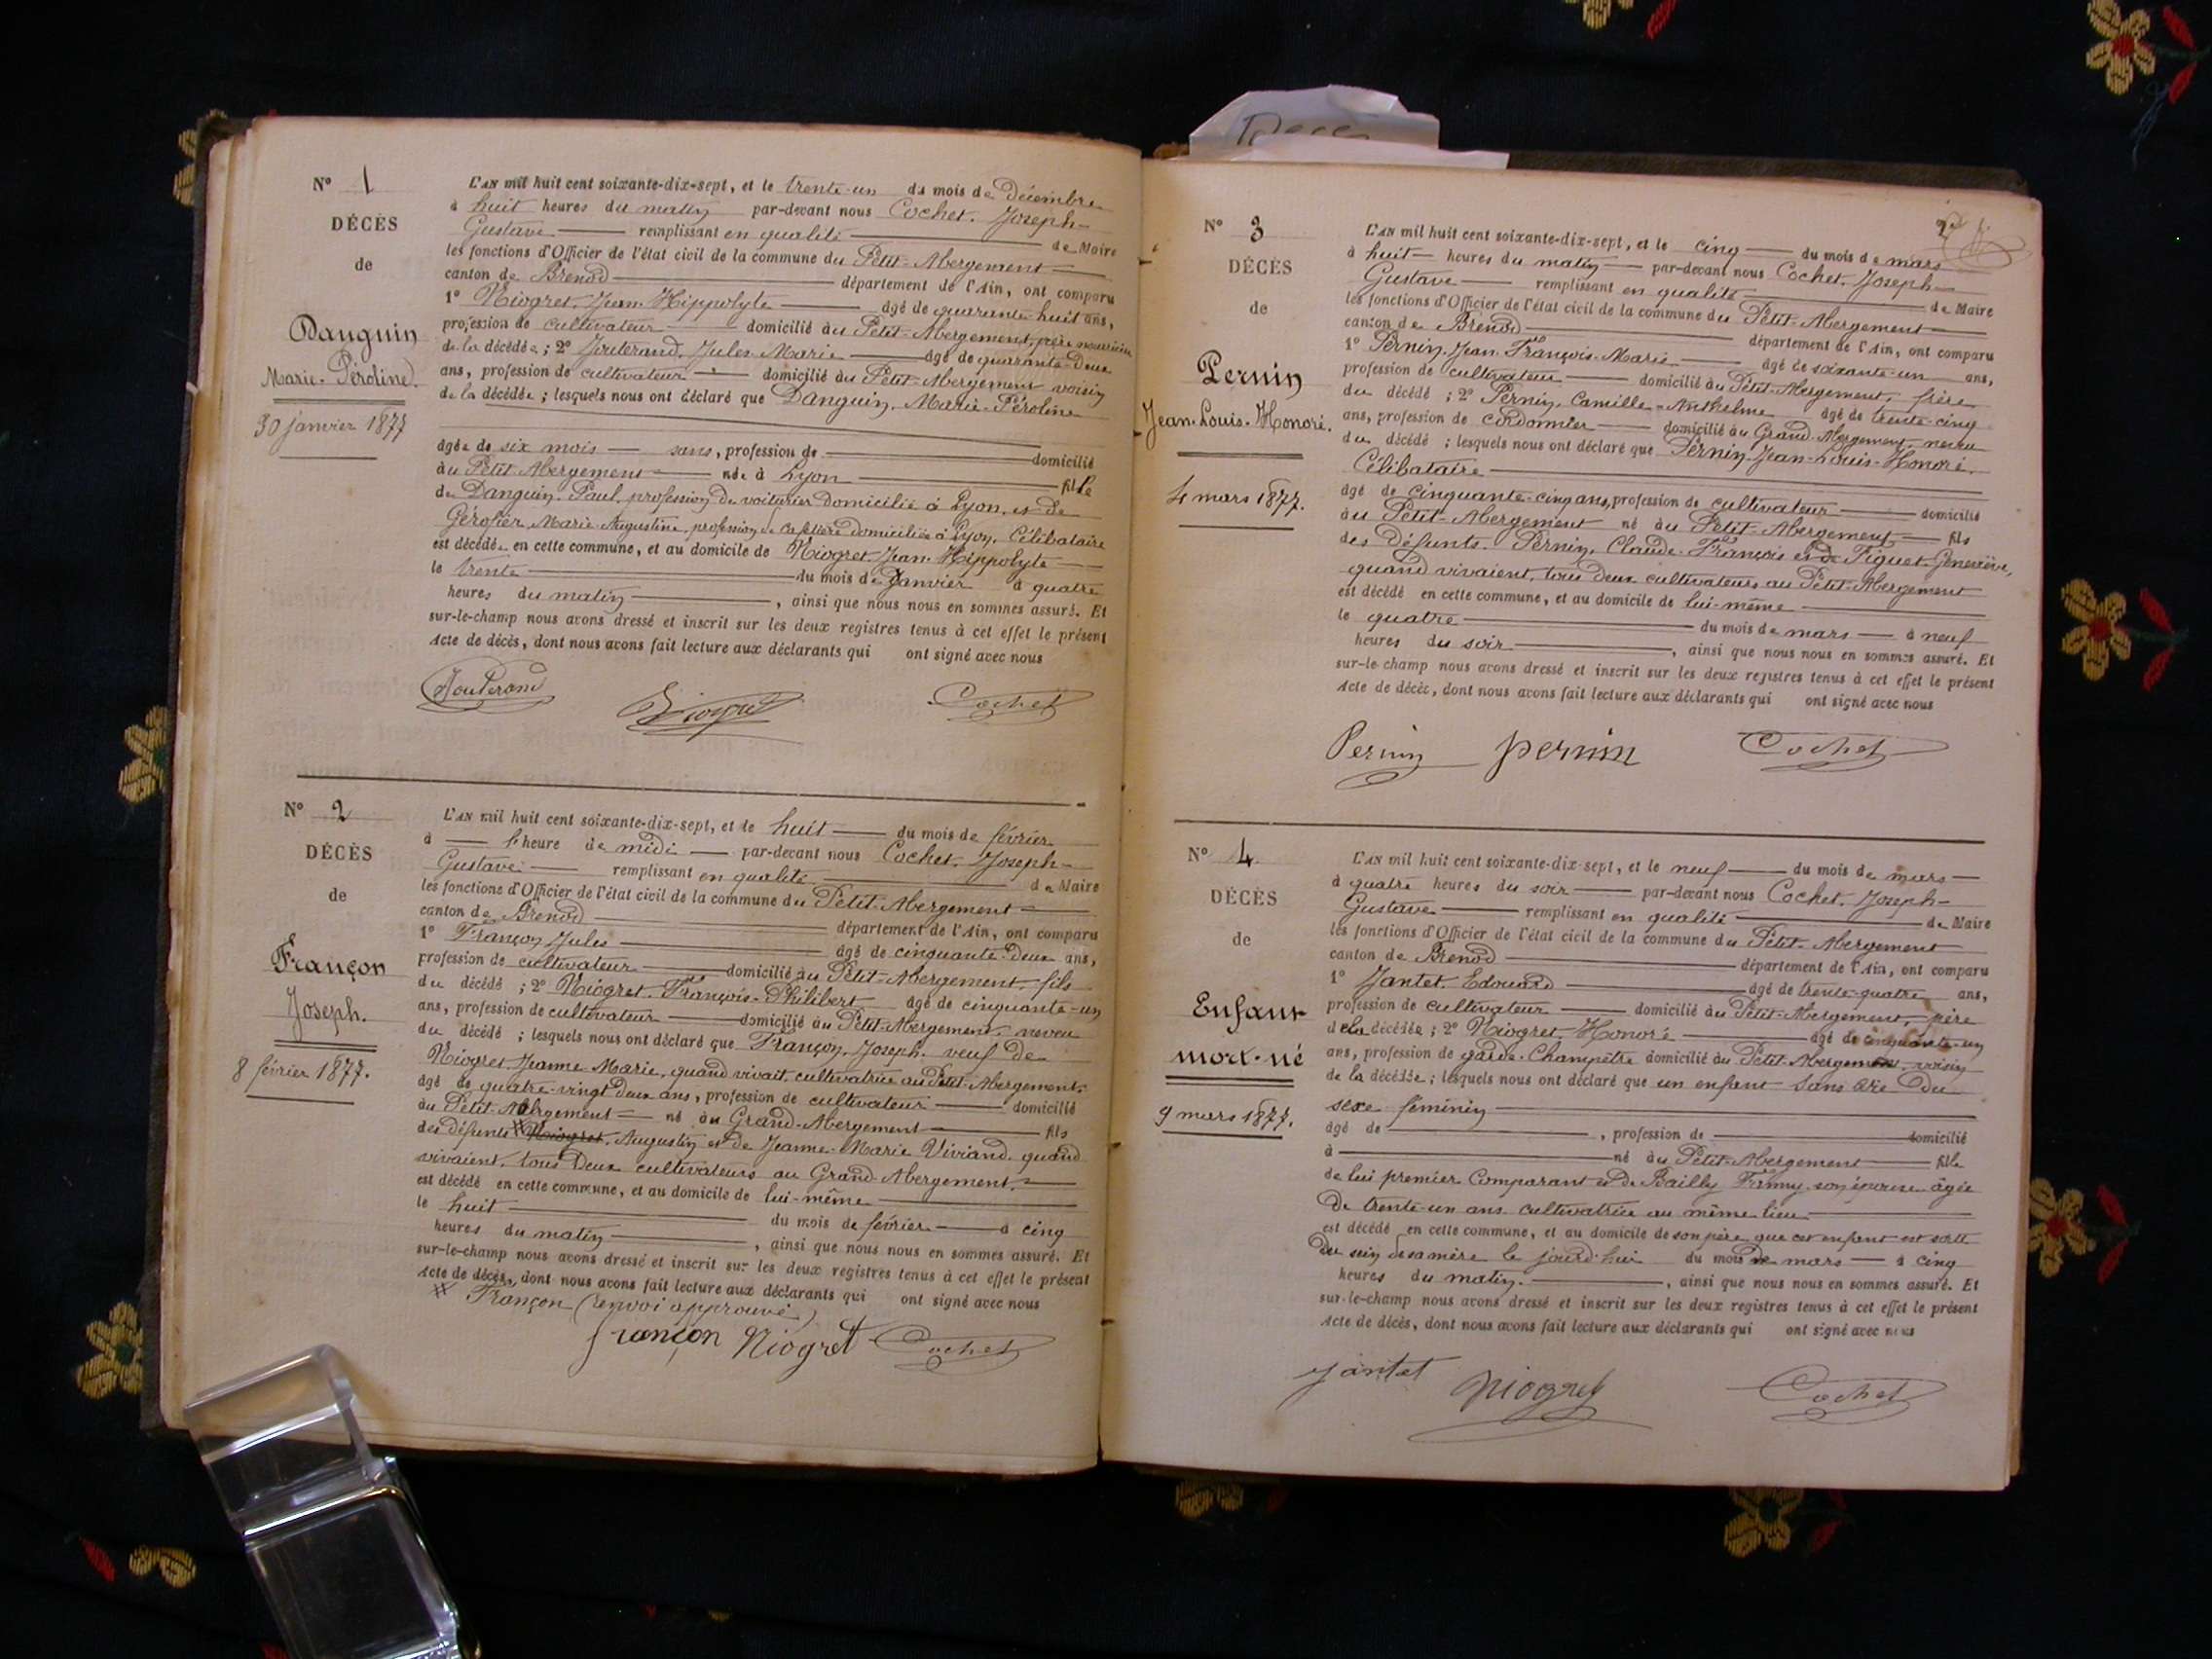 Nº 1
DÉCÈS
de
Danguin
Marie-Péroline.
30 janvier 1877
L'AN mil huit cent soixante-dix-sept, et le trente-un du mois de Décembre
à huit heures du matin par-devant nous Cochet, Joseph-
Gustave remplissant en qualité de Maire
les fonctions d'Officier de l'état civil de la commune du Petit-Abergement
canton de Brenod département de l'Ain, ont comparu
1º Niogret, Jean-Hippolyte âgé de quarante-huit ans,
profession de cultivateur domicilié au Petit-Abergement, père nourricier
de la décédée ; 2º Jouterand, Jules-Marie âgé de quarante-Deux
ans, profession de cultivateur domicilié au Petit-Abergement voisin
de la décédée ; lesquels nous ont déclaré que Danguin, Marie-Péroline
âgée de six mois sans, profession de domicilié
au Petit-Abergement née à Lyon fille
de Danguin, Paul, profession de voiturier domicilié à Lyon, et de
Gérofier, Marie-Augustine, profession de cafetière domiciliée à Lyon, Célibataire
est décédée en cette commune, et au domicile de Niogret, Jean-Hippolyte
le trente du mois de Janvier à quatre
heures du matin, ainsi que nous nous en sommes assuré. Et
sur-le-champ nous avons dressé et inscrit sur les deux registres tenus à cet effet le présent
Acte de décès, dont nous avons fait lecture aux déclarants qui ont signé avec nous
Jouterand Niogret Cochet
Nº 2
DÉCÈS
de
Françon
Joseph.
8 février 1877.
L'AN mil huit cent soixante-dix-sept, et le huit du mois de février
à l'heure de midi par-devant nous Cochet, Joseph-
Gustave remplissant en qualité de Maire
les fonctions d'Officier de l'état civil de la commune du Petit-Abergement
canton de Brenod département de l'Ain, ont comparu
1º Françon, Jules âgé de cinquante-Deux ans,
profession de cultivateur domicilié au Petit-Abergement, fils
du décédé ; 2º Niogret, François-Philibert âgé de cinquante-un
ans, profession de cultivateur domicilié au Petit-Abergement, neveu
du décédé ; lesquels nous ont déclaré que Françon, Joseph, veuf de
Niogret Jeanne-Marie, quand vivait, cultivatrice au Petit-Abergement,
âgé de quatre-vingt Deux ans, profession de cultivateur domicilié
au Petit-Abergement né au Grand-Abergement fils
des défunts # Niogret, Augustin et de Jeanne-Marie Viviand, quand
vivaient, tous Deux cultivateurs au Grand-Abergement.
est décédé en cette commune, et au domicile de lui-même
le huit du mois de février à cinq
heures du matin, ainsi que nous nous en sommes assuré. Et
sur-le-champ nous avons dressé et inscrit sur les deux registres tenus à cet effet le présent
Acte de décès, dont nous avons fait lecture aux déclarants qui ont signé avec nous
# Françon (renvoi approuvé)
françon Niogret Cochet
Nº 3
DÉCÈS
de
Pernin
Jean-Louis-Honoré.
4 mars 1877.
2
L'AN mil huit cent soixante-dix-sept, et le cinq du mois de mars
à huit heures du matin par-devant nous Cochet, Joseph-
Gustave remplissant en qualité de Maire
les fonctions d'Officier de l'état civil de la commune du Petit-Abergement
canton de Brenod département de l'Ain, ont comparu
1º Pernin, Jean-François-Marie âgé de soixante-un ans,
profession de cultivateur domicilié au Petit-Abergement, frère
du décédé ; 2º Pernin, Camille-Anthelme âgé de trente-cinq
ans, profession de cordonnier domicilié au Grand-Abergement, neveu
du décédé ; lesquels nous ont déclaré que Pernin, Jean-Louis-Honoré,
Célibataire
âgé de cinquante-cinq ans, profession de cultivateur domicilié
au Petit-Abergement né au Petit-Abergement fils
des Défunts, Pernin, Claude-François et de Piguet, Geneviève,
quand vivaient, tous deux cultivateurs au Petit-Abergement
est décédé en cette commune, et au domicile de lui-même
le quatre du mois de mars à neuf
heures du soir, ainsi que nous nous en sommes assuré. Et
sur-le-champ nous avons dressé et inscrit sur les deux registres tenus à cet effet le présent
Acte de décès, dont nous avons fait lecture aux déclarants qui ont signé avec nous
Pernin pernin Cochet
Nº 4.
DÉCÈS
de
Enfant
mort-né
9 mars 1877.
L'AN mil huit cent soixante-dix-sept, et le neuf du mois de mars
à quatre heures du soir par-devant nous Cochet, Joseph-
Gustave remplissant en qualité de Maire
les fonctions d'Officier de l'état civil de la commune du Petit-Abergement
canton de Brenod département de l'Ain, ont comparu
1º Jantet, Edouard âgé de trente-quatre ans,
profession de cultivateur domicilié au Petit-Abergement, père
de la décédée ; 2º Niogret, Honoré âgé de cinquante-un
ans, profession de garde-Champêtre domicilié au Petit-Abergement, voisin
de la décédée ; lesquels nous ont déclaré que un enfant sans vie du
sexe féminin
âgé de , profession de domicilié
à né au Petit-Abergement fille
de lui premier Comparant et de Bailly Fanny, son épouse âgée
De trente-un ans cultivatrice au même lieu
est décédé en cette commune, et au domicile de son père, que cet enfant est sorti
Du sein de sa mère le jourd'hui du mois de mars à cinq
heures du matin, ainsi que nous nous en sommes assuré. Et
sur-le-champ nous avons dressé et inscrit sur les deux registres tenus à cet effet le présent
Acte de décès, dont nous avons fait lecture aux déclarants qui ont signé avec nous
Jantet Niogret Cochet